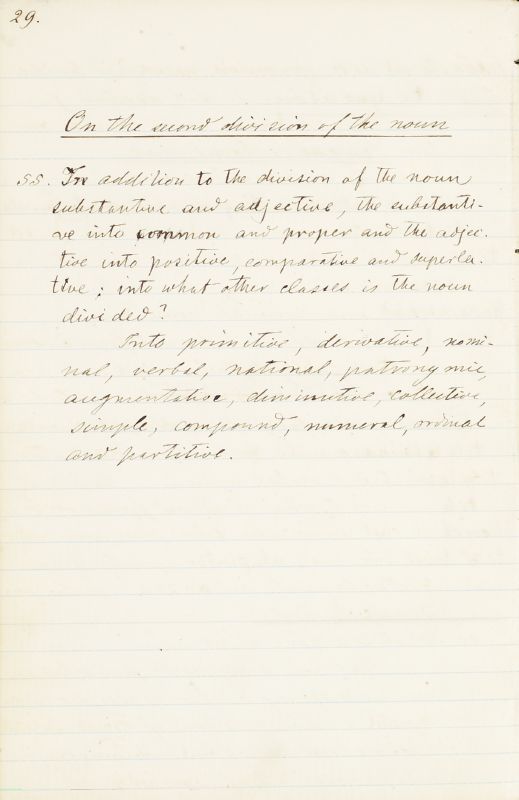 29.
On the second division of the noun
55. In addition to the division of the noun
substantive and adjective, the substanti-
ve into common and proper and the adjec-
tive into positive, comparative and superla-
tive; into what other classes is the noun
divided?
Into primitive, derivative, nomi-
nal, verbal, national, patronymic,
augmentative, diminutive, collective,
simple, compound, numeral, ordinal
and partitive.